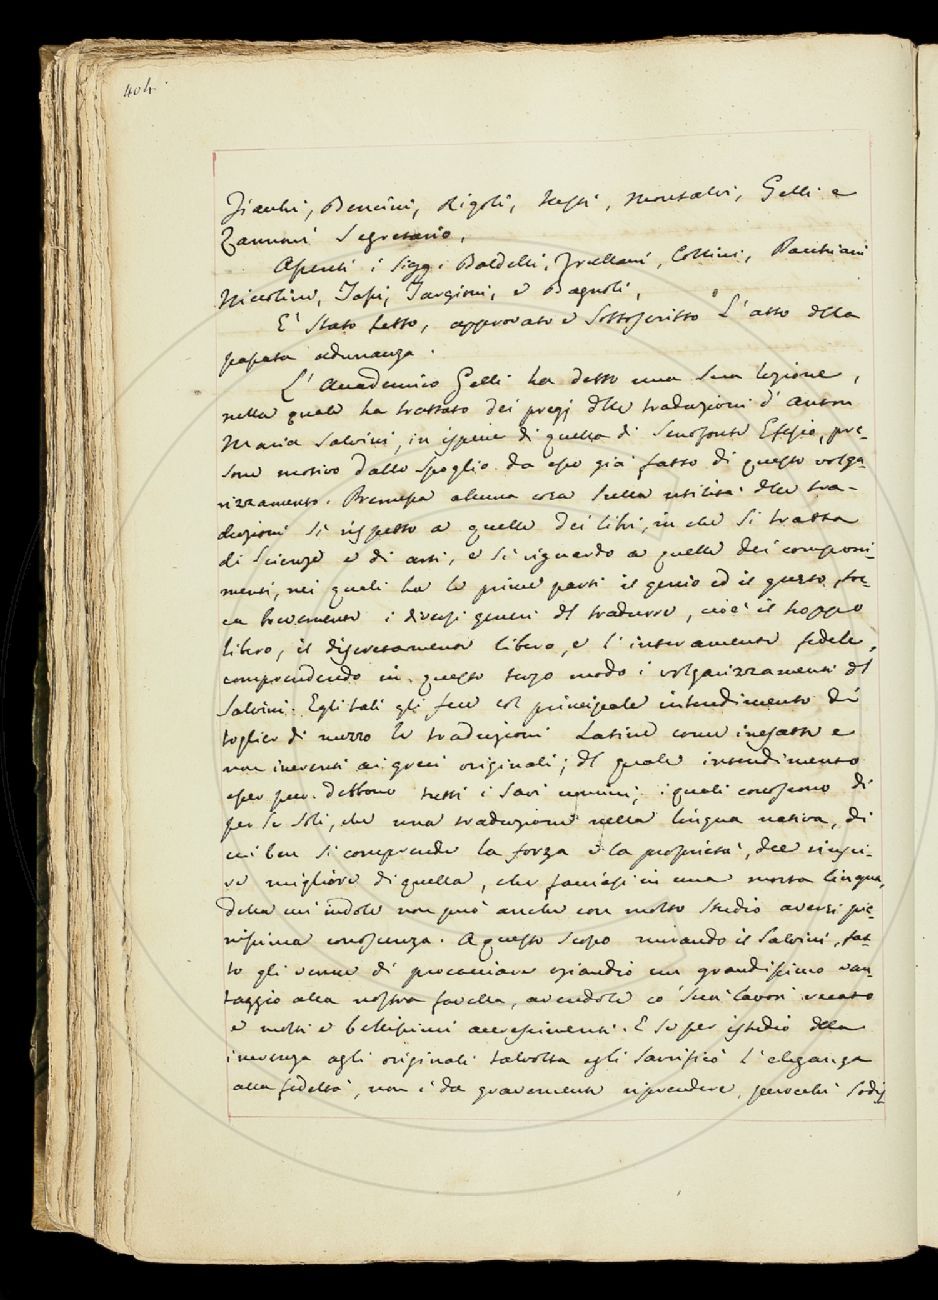 404.
Fiacchi, Bencini, Rigoli, Nesti, Montalvi, Gelli e
Zannoni Segretario.
Assenti i Sigg.i Baldelli, Frullani, Collini, Banchiani
Niccolini, Targioni, e Bagnoli.
E' stato letto, approvato e sottoscritto l'atto della
passata adunanza.
L'Accademico Gelli ha detto una sua lezione,
nella quale ha trattato dei pregj delle traduzioni d'Anton
Maria Salvini, in ispecie di quella di Senofonte Efesio, pre-
sone motivo dallo spoglio da esso già fatto di questo volga-
rizzamento. Premessa alcuna cosa sulla utilità delle tra-
duzioni sì rispetto a quelle dei libri, in che si tratta
di Scienze e di arti, e sì riguardo a quelle dei componi-
menti, nei quali ha le prime parti il genio ed il gusto, toc-
ca brevemente i diversi generi di tradurre, cioè il troppo
libero, il discretamente libero, e l'interamente fedele,
comprendendo in questo terzo modo i volgarizzamenti del
Salvini. Egli tali gli fece col principale intendimento di
toglier di mezzo le traduzioni Latine come inesatte e
non inerenti ai greci originali; del quale intendimento
esser pur debbono tutti i savi uomini, i quali conoscono di
per se soli, che una traduzione nella lingua nativa, di
cui ben si comprende la forza e la proprietà, dee riusci-
re migliore di quella, che facciasi in una morta lingua,
della cui indole non può anche con molto studio aversi pie-
nissima conoscenza. A questo scopo mirando il Salvini, fat-
to gli venne di procacciare eziandio un grandissimo van-
taggio alla nostra favella, avendole co' suoi lavori recato
e molti e bellissimi accrescimenti. E se per istudio della
inerenza agli originali talvolta egli sacrificò l'eleganza
alla fedeltà, non è da gravemente riprendere, perocchè sodis-